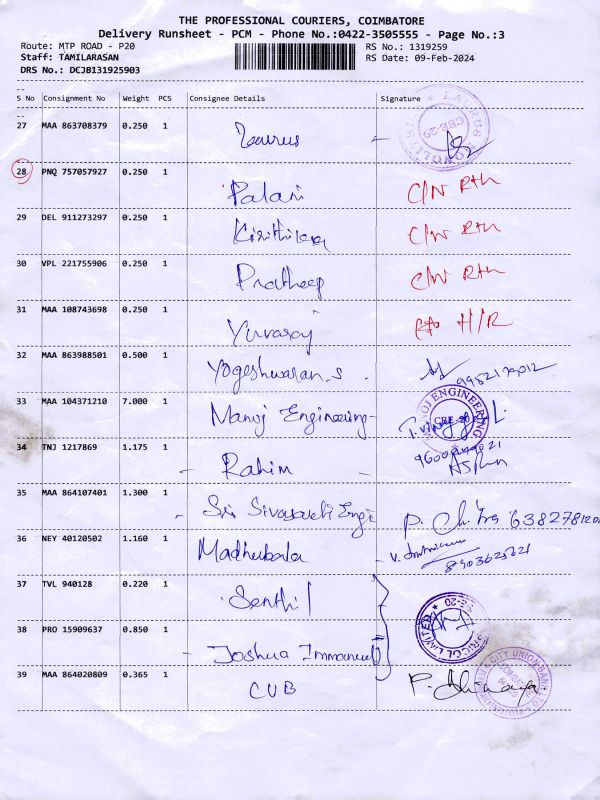 THE PROFESSIONAL COURIERS, COIMBATORE
Delivery Runsheet - PCM - Phone No.:0422-3505555 - Page No.:3
Route: MTP ROAD - P20 RS No.: 1319259
Staff: TAMILARASAN RS Date: 09-Feb-2024
DRS No.: DCJB131925903
S No Consignment No Weight PCS Consignee Details Signature
27 MAA 863708379 0.250 1 Taurus
28 PNQ 757057927 0.250 1 Palani C/N Rtn
29 DEL 911273297 0.250 1 C/N Rtn
30 VPL 221755906 0.250 1 Pratheep C/N Rtn
31 MAA 108743698 0.250 1 Yuvaraj H/R
32 MAA 863988501 0.500 1 Yogeshwaran.S
33 MAA 104371210 7.000 1 Manoj Engineering MANOJ ENGINEERING CBE-20
34 TNJ 1217869 1.175 1 Rahim
35 MAA 864107401 1.300 1 Sri P. Chitra
36 NEY 40120502 1.160 1 Madhubala 8903625621
37 TVL 940128 0.220 1 Senthil
38 PRO 15909637 0.850 1 Joshua Immanuel PRICOL LIMITED
39 MAA 864020809 0.365 1 CUB CITY UNION BANK